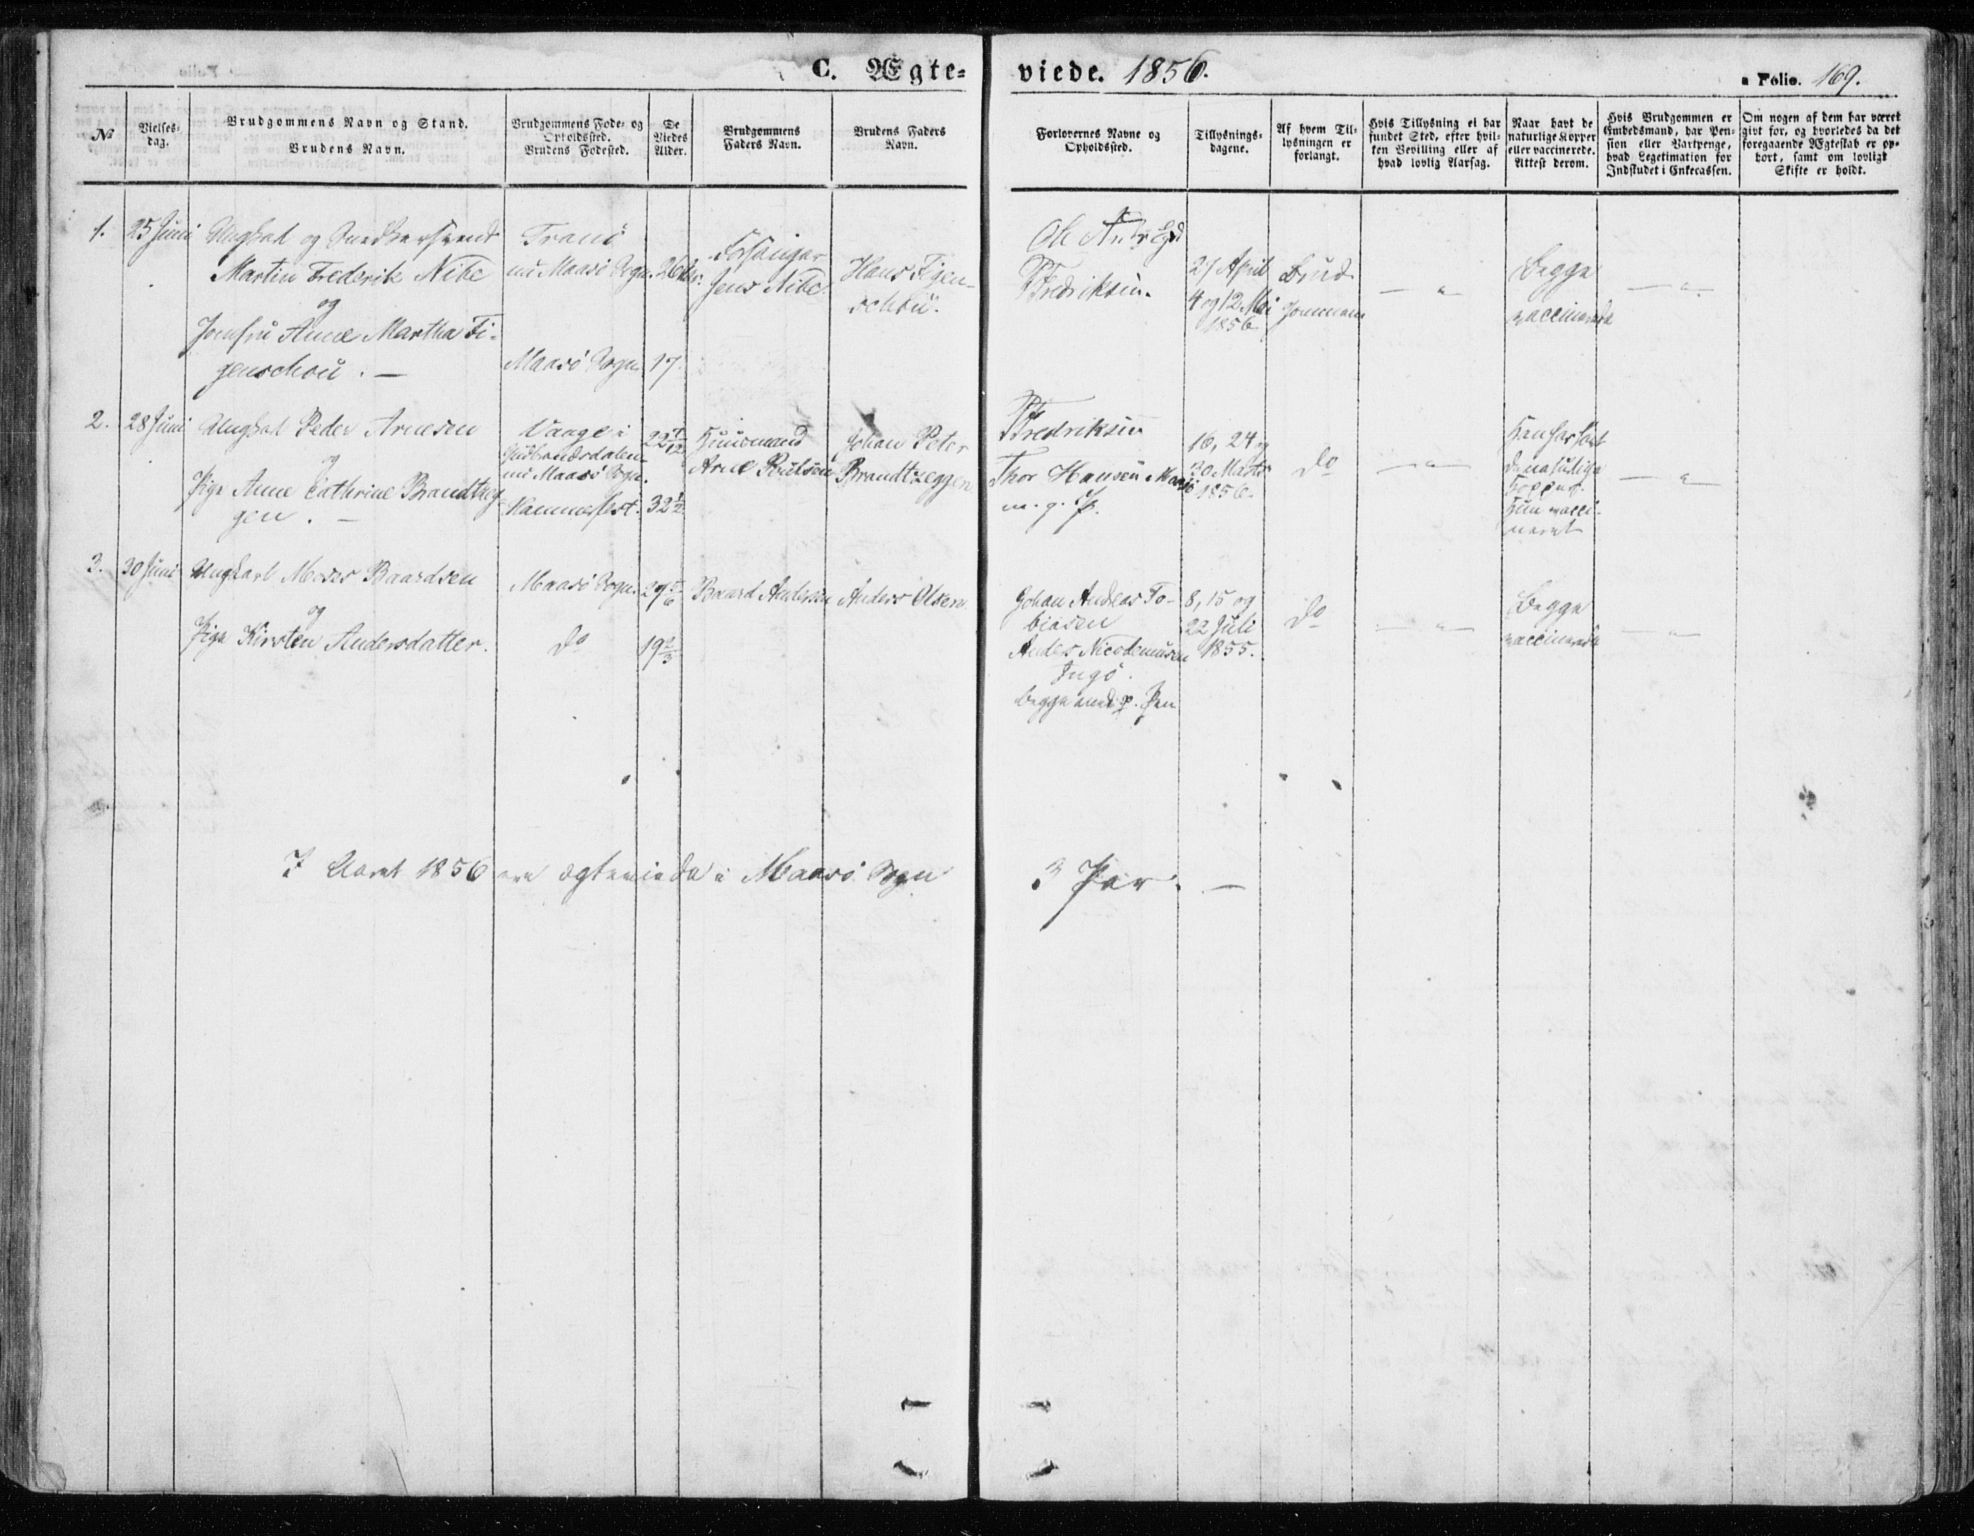 C. Ægteviede. 1856.
Folio. 169.
№
Vielses-
dag.
Brudgommens Navn og Stand.
Brudens Navn.
Brudgommens Føde- og
Opholdssted.
Brudens Fødested.
De
Viedes
Alder.
Brudgommens
Faders Navn.
Brudens Faders
Navn.
Forlovernes Navne og
Opholdssted.
Tillysnings-
dagene.
Af hvem Til-
lysningen er
forlangt.
Hvis Tillysning ei har
fundet Sted, efter hvil-
ken Bevilling eller af
hvad lovlig Aarsag.
Naar havt de
naturlige Kopper
eller vaccinerede.
Attest derom.
Hvis Brudgommen er
Embedsmand, har Pen-
sion eller Vartpenge,
hvad Legetimation for
Indskudet i Enkecassen.
Om nogen af dem har været
givt for, og hvorledes da det
foregaaende Ægteskab er op-
hørt, samt om lovligt
Skifte er holdt.
1.
25 Juni
Ungkarl og Snedkersvend
Martin Frederik Nibe
og
Jomfru Anne Martha Fi-
genschou. —
Tranö
nu Maasö Sogn.
Maasö Sogn
26
17.
Forsanger
Jens Nibe.
Hans Figen-
schou.
Ole
Fredriksen.
27 April
4 og 12 Mai
1856
Brud-
gommen
Begge
vaccinerede
2.
28 Juni
Ungkarl Peder Arnesen
og
Pige Anne Cathrine Brandtzeg-
gen. —
Vaage i
Gudbrandsdalen
nu Maasö Sogn.
Hammerfest.
22 7/12
32 1/2
Huusmand
Arne Poulsen
Johan Peter
Brandtzeggen
Fredriksen
Thor Hansen Maasö
m. p. P.
16, 24 og
30 Marts
1856.
Do
Han har havt
de naturlige
Kopper.
Hun vacci-
neret
3.
30 Juni
Ungkarl Moses Baardsen
og
Pige Kirsten Andersdatter.
Maasö Sogn
Do
27 5/6
19 2/3
Baard Andersen
Anders Olsen
Johan Andreas To-
biasen
Anders Nicodemusen
Ingö.
begge med p. Pen
8, 15 og
22 Juli
1855.
Do
Begge
vaccinerede
I Aaret 1856 ere ægteviede i Maasö Sogn 3 Par. —